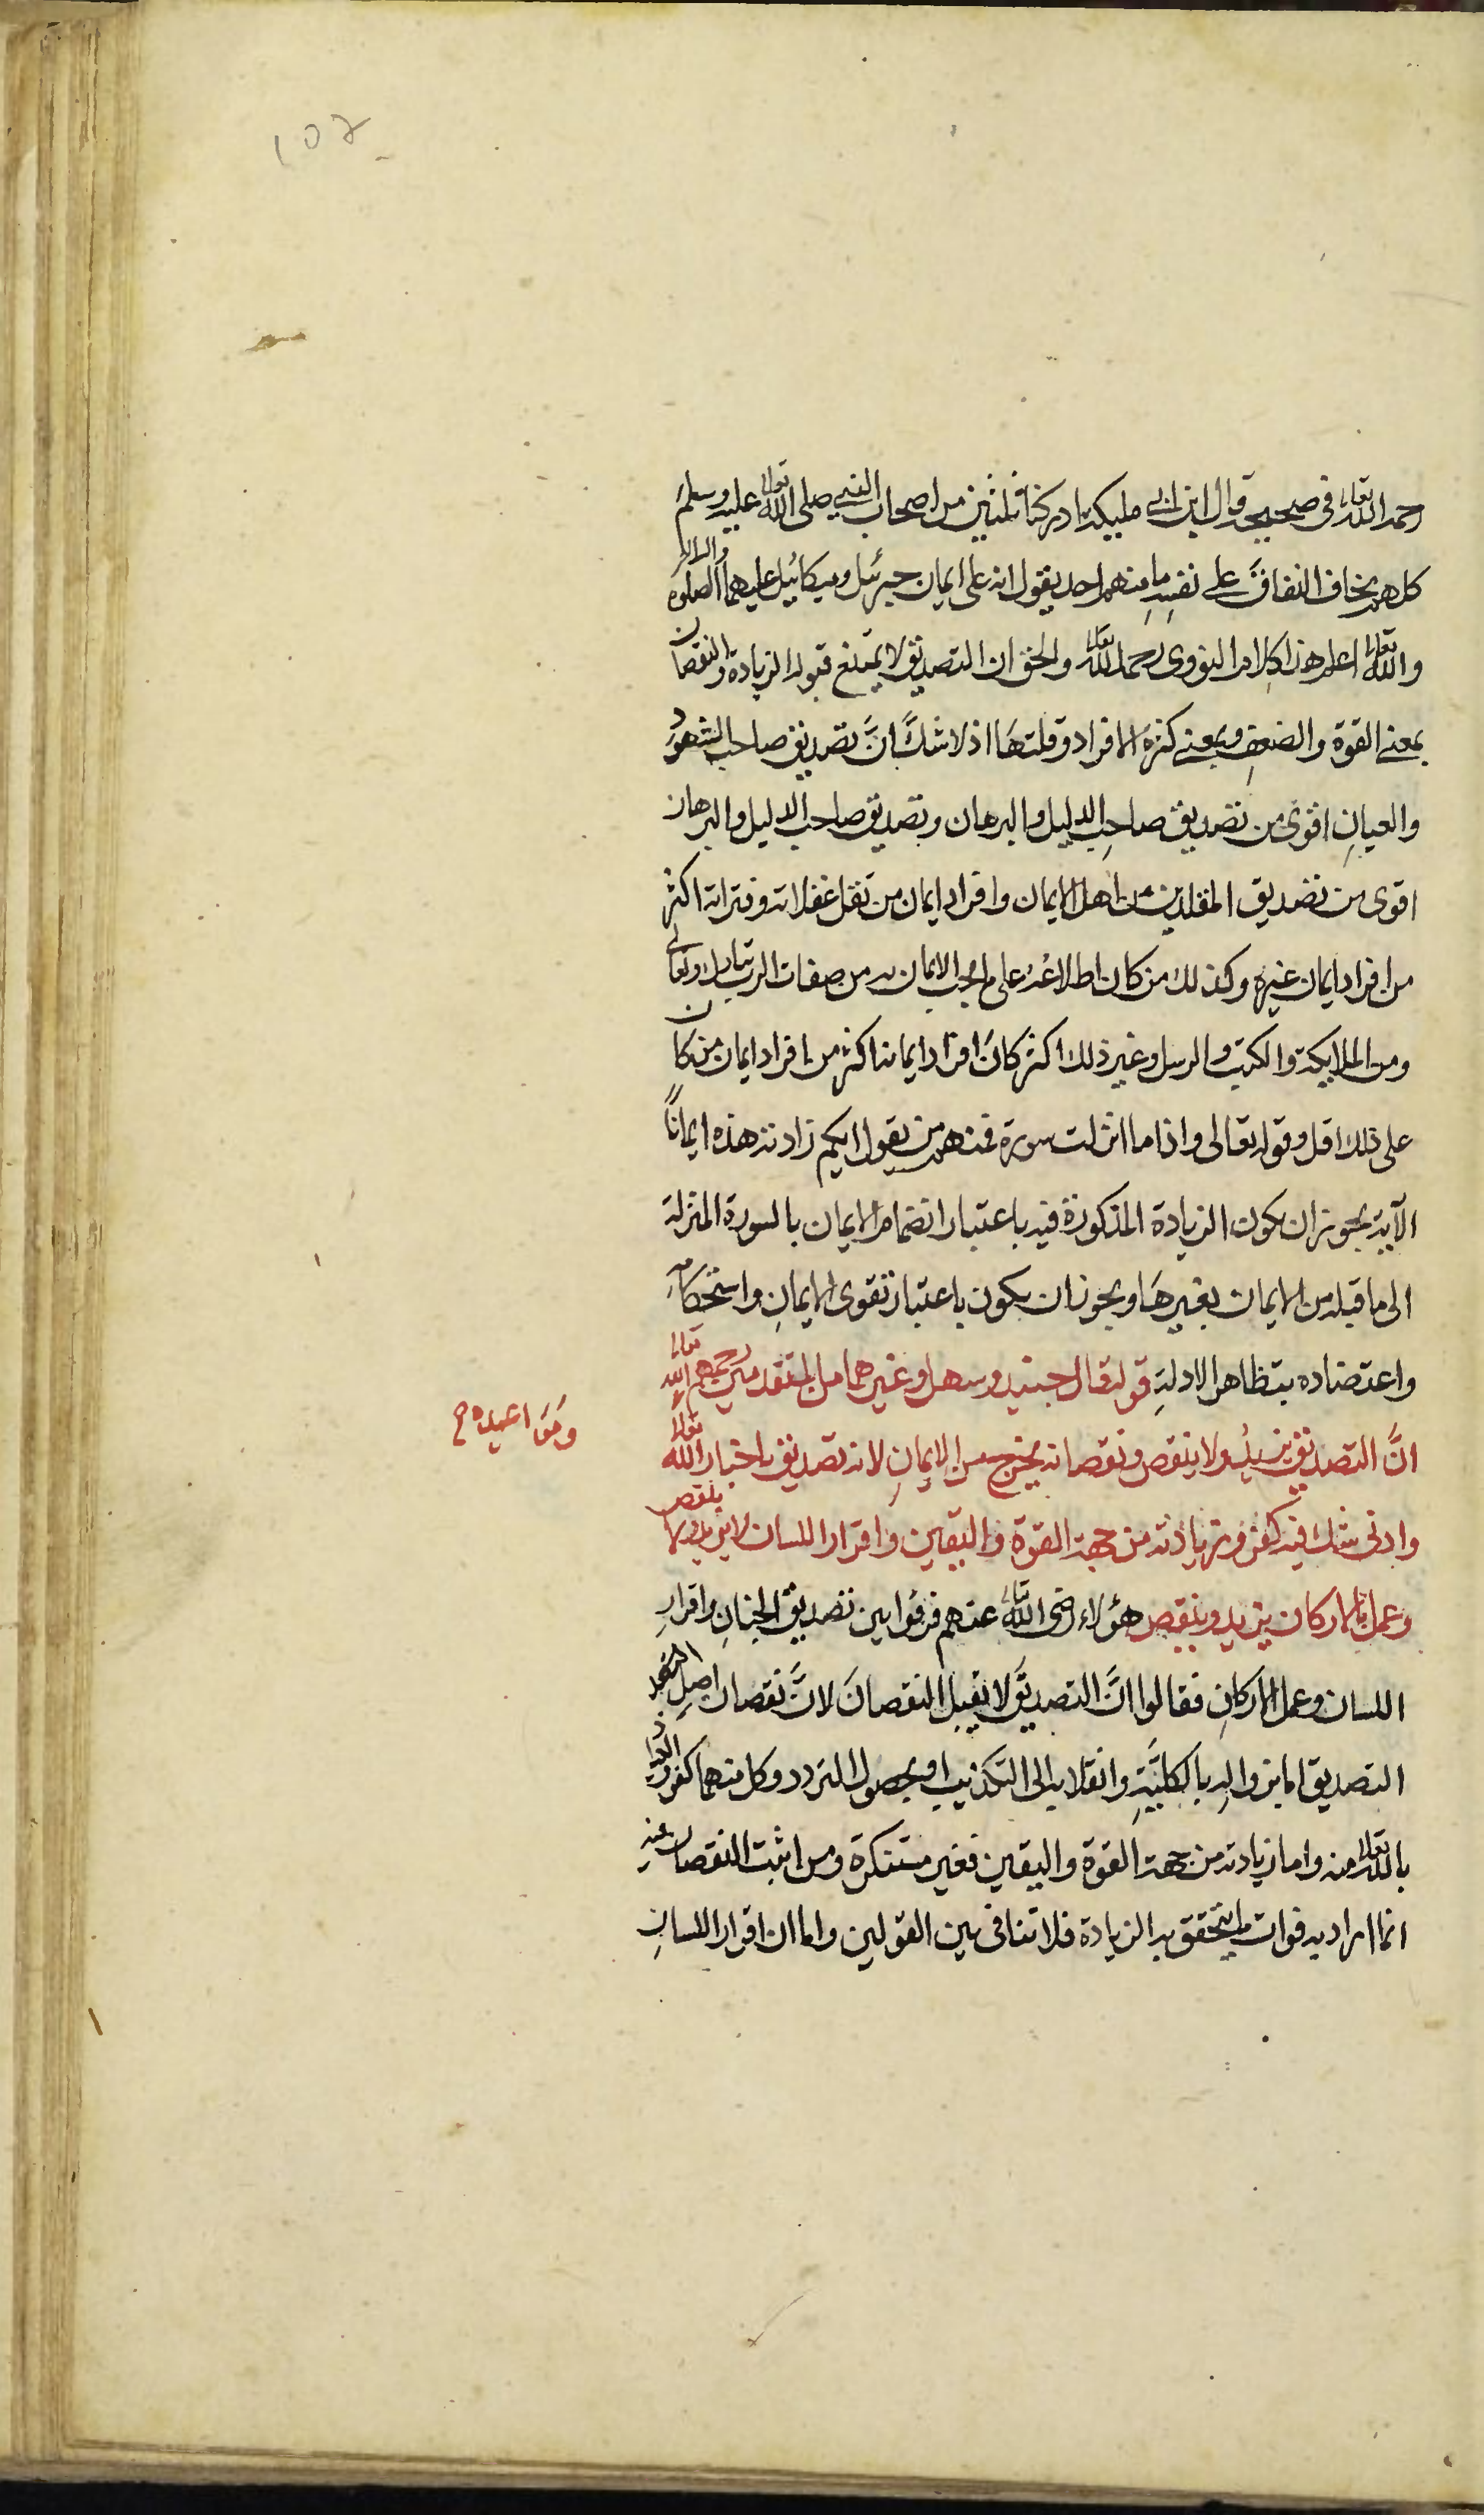 ١٥٢
رحمه الله تعالى فى صحيحه قال ابن ابى مليكة ادركنا ثلثين من اصحاب النبى صلى الله تعالى عليه وسلم
كلهم يخاف النفاق على نفسه ما منهم احد يقول انه على ايمان جبرئيل وميكائيل عليهما الصلوة والسلام
والله تعالى اعلم هذا كلام النووى رحمه الله تعالى والحق ان التصديق لا يمتنع قبوله الزيادة والنقصان
بمعنى القوة والضعف وبمعنى كثرة الافراد وقلتها اذ لا شك انَّ تصديق صاحب الشهود
والعيانِ اقوى من تصديق صاحب الدليل والبرهان وتصديق صاحب الدليل والبرهان
اقوى من تصديق المقلدين من اهل الايمان وافراد ايمان من تقل غفلاته وفتراته اكثر
من افراد ايمان غيره وكذلك من كان اطلاعه على ما يجب الايمان به من صفات الرب تبارك وتعالى
ومن الملايكة والكتب والرسل وغير ذلك اكثر كان افراد ايمانه اكثر من افراد ايمان من كان
على ذلك اقل وقوله تعالى واذا ما انزلت سورة فمنهم من يقول ايكم زادته هذه ايمانًا
الآية يجوز ان يكون الزيادة المذكورة فيه باعتبار انضمام الايمان بالسورة المنزلة
الى ما قبله من الايمان بغيرها ويجوز ان يكون باعتبار تقوى الايمانِ واستحكامه
واعتضاده بتظاهر الادلةِ قوله قال جنيد وسهل وغيرهما من المتقدمين رحمهم الله تعالى
انَّ التصديق يزيد ولا ينقص ونقصانه يخرج من الايمانِ لانه تصديق باخبار الله تعالى
وادنى شك فيه كفر وزيادته من جهة القوة واليقين واقرار اللسان لا يزيد ولا ينقص
وعمل بالاركان يزيد وينقص هؤلاء رضى الله تعالى عنهم فرقوا بين تصديق الجنانِ واقرارِ
اللسان وعمل الاركانِ فقالوا انَّ التصديقَ لا يقبل النقصانَ لانَّ نقصان اصلِ
التصديق اما بزواله بالكليَّةِ وانقلابه الى التكذيب او بحصول التردد وكل منهما كفر
بالله تعالى منه واما زيادته من جهة القوة واليقين فغير مستنكرة ومن اثبت النقصان عنه
انما اراد به فوات ما يتحقق به الزيادة فلا تنافى بين القولين واما ان اقرار اللسانِ